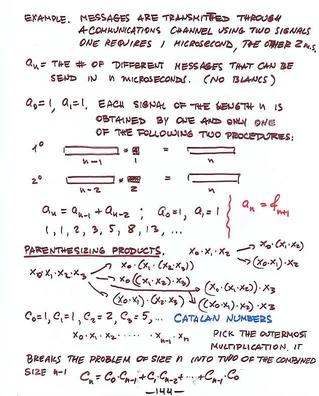 EXAMPLE. MESSAGES ARE TRANSMITTED THROUGH
A COMMUNICATIONS CHANNEL USING TWO SIGNALS
ONE REQUIRES 1 MICROSECOND, THE OTHER 2 M.S.
aₙ = THE # OF DIFFERENT MESSAGES THAT CAN BE
SEND IN n MICROSECONDS. (NO BLANCS)
a₀=1, a₁=1. EACH SIGNAL OF THE LENGTH n IS
OBTAINED BY ONE AND ONLY ONE
OF THE FOLLOWING TWO PROCEDURES:
1° + =
n-1 1 n
2° + =
n-2 2 n
aₙ = aₙ₋₁ + aₙ₋₂ ; a₀=1, a₁=1 } aₙ = fₙ₊₁
1, 1, 2, 3, 5, 8, 13, ...
PARENTHESIZING PRODUCTS. x₀·x₁·x₂ x₀·(x₁·x₂)
(x₀·x₁)·x₂
x₀·x₁·x₂·x₃ x₀·(x₁·(x₂·x₃))
x₀·((x₁·x₂)·x₃)
(x₀·(x₁·x₂))·x₃
(x₀·x₁)·(x₂·x₃) ((x₀·x₁)·x₂)·x₃
C₀=1, C₁=1, C₂=2, C₃=5, ... CATALAN NUMBERS
x₀·x₁·x₂ ······ xₙ₋₁·xₙ PICK THE OUTERMOST
MULTIPLICATION. IT
BREAKS THE PROBLEM OF SIZE n INTO TWO OF THE COMBINED
SIZE n-1 Cₙ = C₀·Cₙ₋₁+C₁·Cₙ₋₂+···+Cₙ₋₁·C₀
—144—